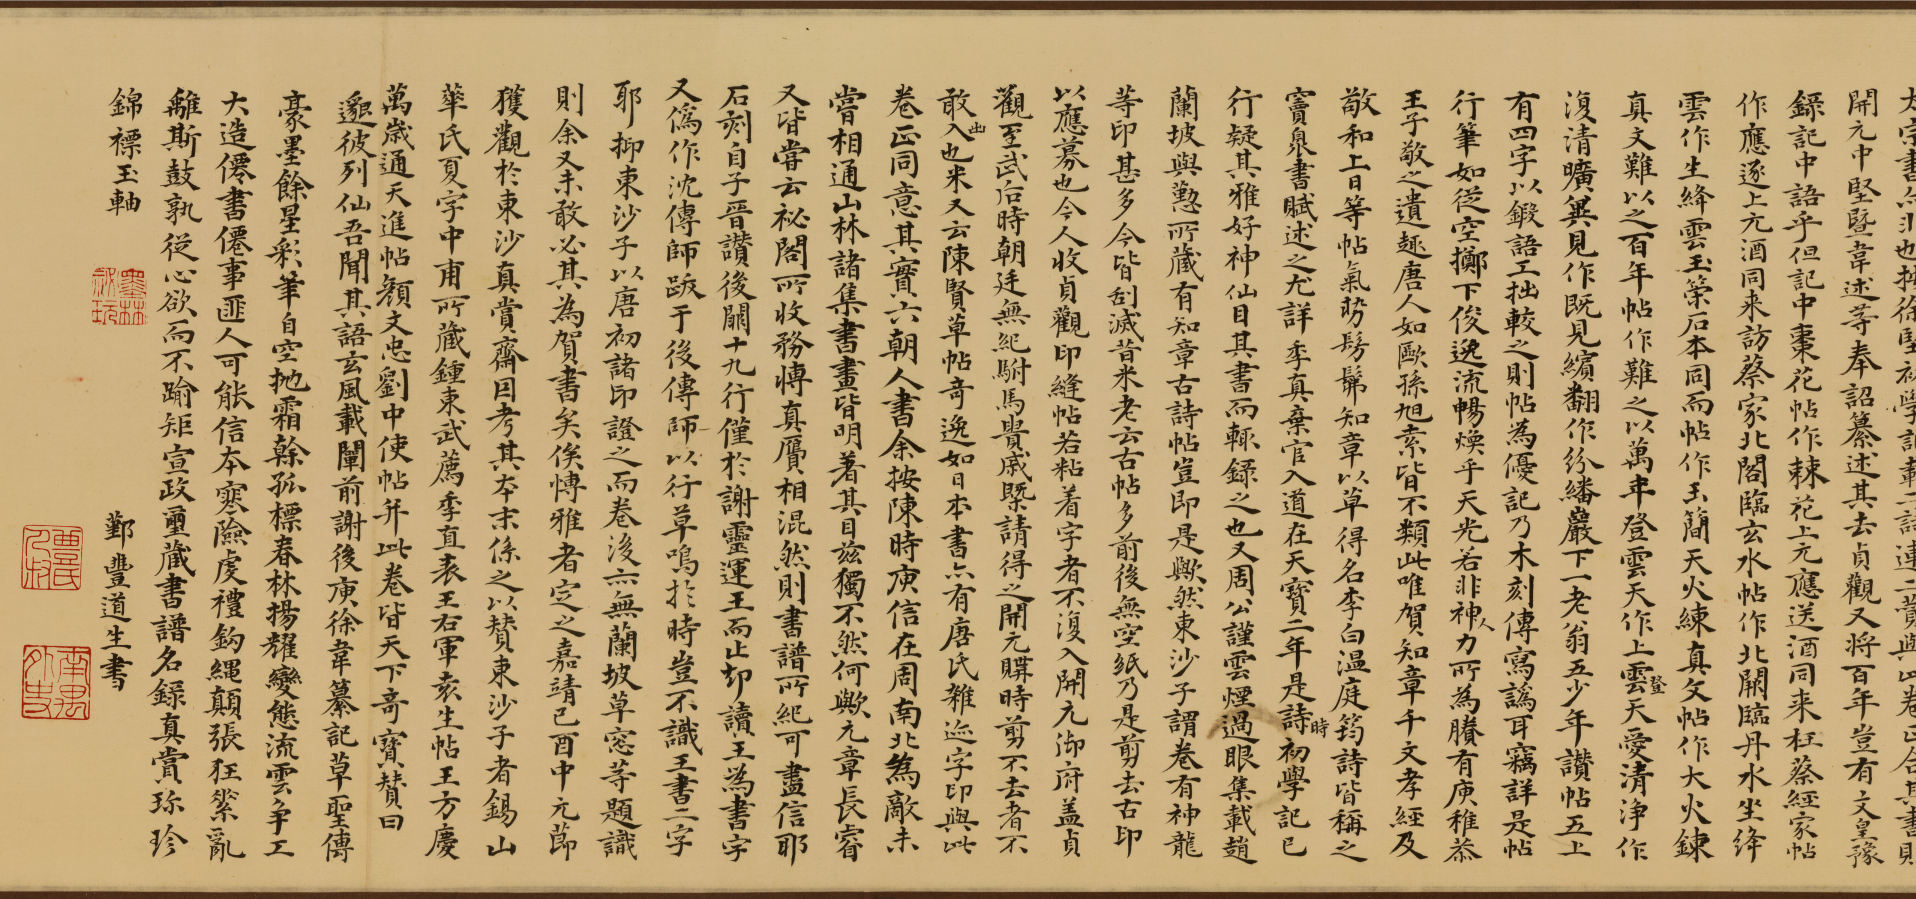 開元中堅暨韋述等奉詔纂述其去貞觀又將百年豈有文皇豫
錄記中語乎但記中棗花帖作棘花上元應送酒同来枉蔡經家帖
作應逐上元酒同来訪蔡家北閣臨玄水帖作北闕臨丹水坐绛
雲作生绛雲玉策石本同而帖作玉簡天火練真文帖作大火鍊
真文難以之百年帖作難之以萬年登雲天作上登雲天愛清淨作
復清曠異見作既見繽翻作紛繙巖下一老翁五少年讚帖五上
有四字以鍛語工拙較之則帖為優記乃木刻傳寫譌耳竊詳是帖
行筆如從空擲下俊逸流暢煥乎天光若非神人力所為賸有庾稚恭
王子敬之遺趣唐人如歐孫旭素皆不類此唯賀知章千文孝經及
敬和上日等帖氣勢髣髴知章以草得名李白温庭筠詩皆稱之
竇臮書賦述之尤詳季真棄官入道在天寶二年是時詩初學記已
行疑其雅好神仙目其書而輒録之也又周公謹雲煙過眼集載趙
蘭坡與懃所藏有知章古詩帖豈即是歟然東沙子謂卷有神龍
等印甚多今皆刮滅昔米老云古帖多前後無空紙乃是剪去古印
以應募也今人收貞觀印縫帖若粘着字者不復入開元御府盖貞
觀至武后時朝廷無紀駙馬貴戚槩請得之開元購時剪不去者不
敢出入也米又云陳賢草帖奇逸如日本書亦有唐氏雜迹字印與此
卷正同意其實六朝人書余按陳時庾信在周南北為敵未
嘗相通山林諸集書畫皆明著其目茲獨不然何歟元章長睿
又皆嘗云祕閣所收務慱真贋相混然則書譜所紀可盡信耶
石刻自子晉讚後闕十九行僅於謝靈運王而止却讀王為書字
又偽作沈傳師跋于後傳師以行草鳴於時豈不識王書二字
耶抑東沙子以唐初諸印證之而卷後亦無蘭坡草窓等題識
則余又未敢必其為賀書矣俟慱雅者定之嘉靖己酉中元節
獲觀於東沙真賞齋因考其本末係之以賛東沙子者錫山
華氏夏字中甫所藏鍾東武薦季直表王右軍袁生帖王方慶
萬歲通天進帖顏文忠劉中使帖并此卷皆天下奇寳賛曰
邈彼列仙吾聞其語玄風載闡前謝後庾徐韋纂記草聖傳
豪墨餘星彩筆自空抛霜榦孤標春林揚耀變態流雲争工
大造僊書僊事匪人可能信本寒險虔禮鈎繩顛張狂縈亂
離斯鼓孰從心欲而不踰矩宣政璽藏書譜名錄真賞珎珍
錦褾玉軸
鄞豐道生書
墨林
祕玩
豐氏
人叔
南禺
外史